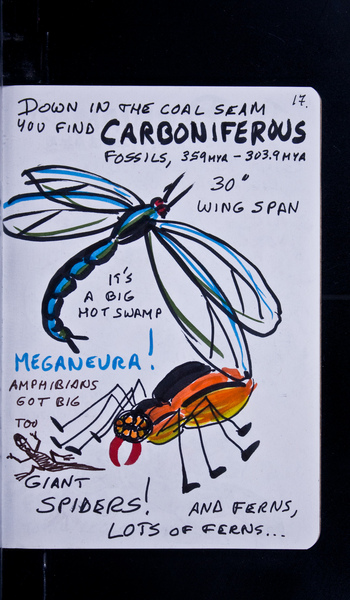 17.
DOWN IN THE COAL SEAM
YOU FIND CARBONIFEROUS
FOSSILS, 359MYA - 303.9MYA
30"
WING SPAN
IT'S
A BIG
HOT SWAMP
MEGANEURA!
AMPHIBIANS
GOT BIG
TOO
GIANT
SPIDERS!
AND FERNS,
LOTS OF FERNS...